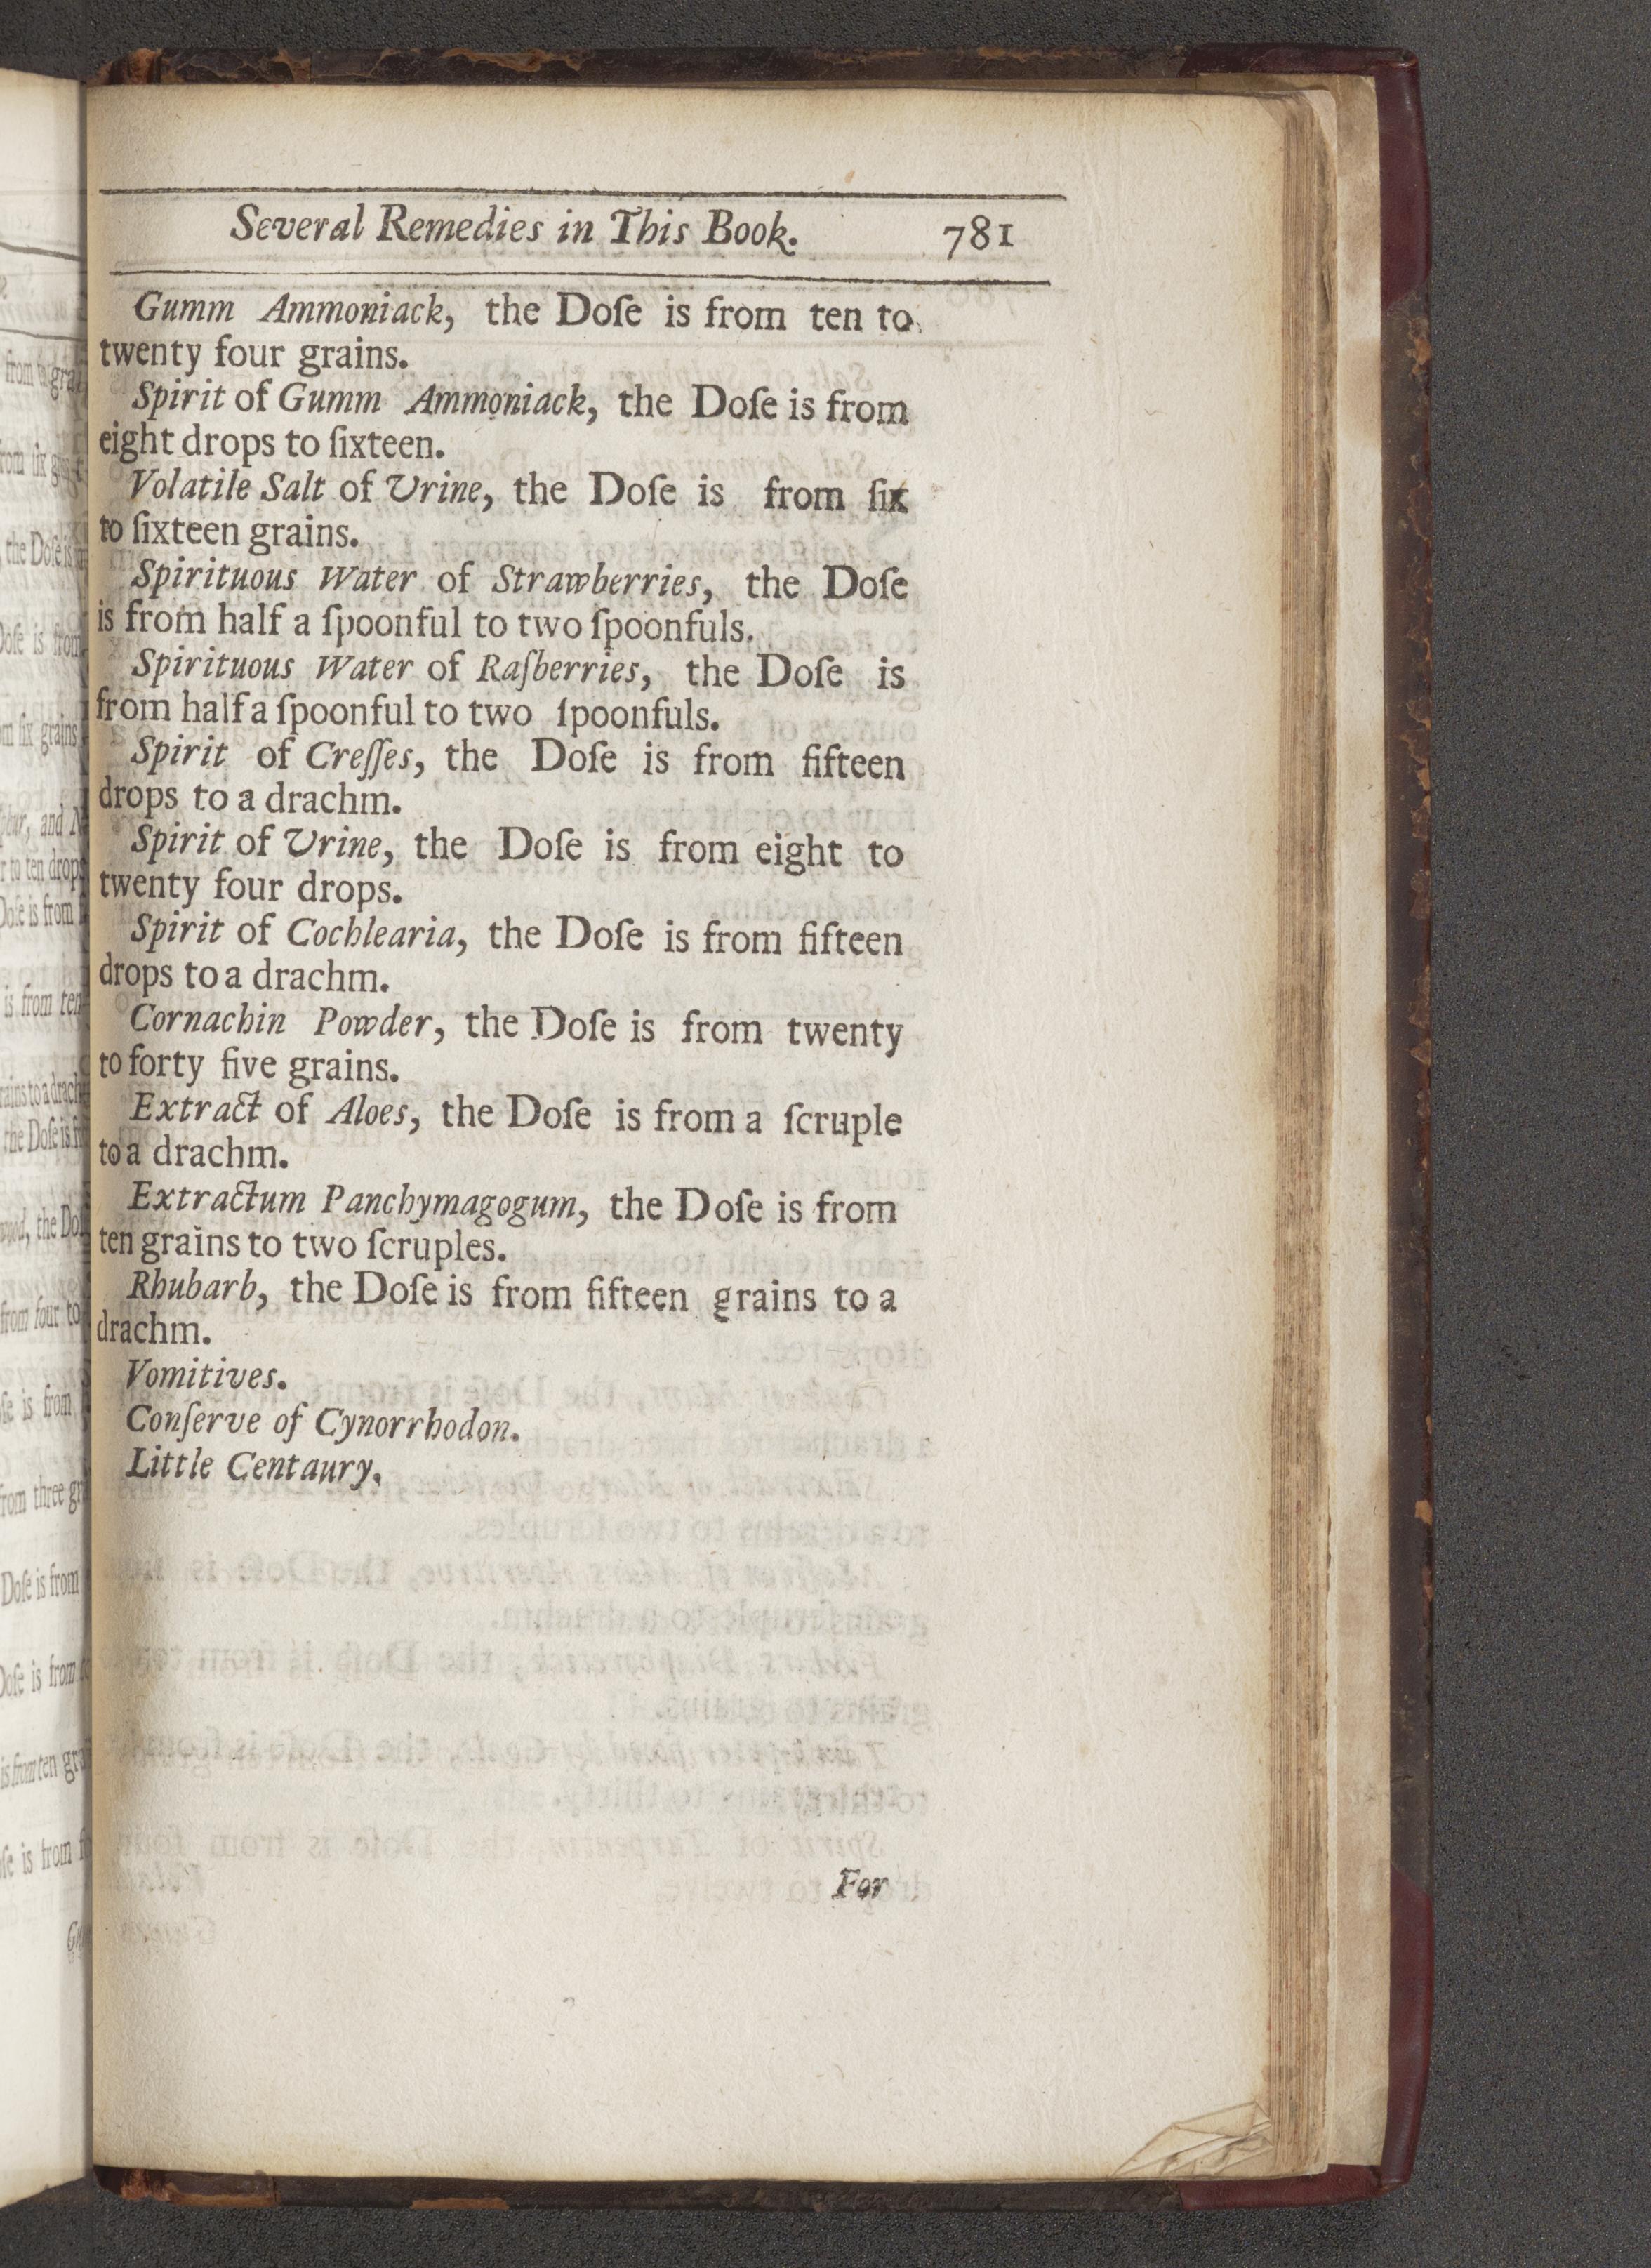 Several Remedies in This Book. 781
Gumm Ammoniack, the Doſe is from ten to
twenty four grains.
Spirit of Gumm Ammoniack, the Doſe is from
eight drops to ſixteen.
Volatile Salt of Urine, the Doſe is from ſix
to ſixteen grains.
Spirituous Water of Strawberries, the Doſe
is from half a ſpoonful to two ſpoonfuls.
Spirituous Water of Raſberries, the Doſe is
from half a ſpoonful to two ſpoonfuls.
Spirit of Creſſes, the Doſe is from fifteen
drops to a drachm.
Spirit of Urine, the Doſe is from eight to
twenty four drops.
Spirit of Cochlearia, the Doſe is from fifteen
drops to a drachm.
Cornachin Powder, the Doſe is from twenty
to forty five grains.
Extract of Aloes, the Doſe is from a ſcruple
to a drachm.
Extractum Panchymagogum, the Doſe is from
ten grains to two ſcruples.
Rhubarb, the Doſe is from fifteen grains to a
drachm.
Vomitives.
Conſerve of Cynorrhodon.
Little Centaury.
For